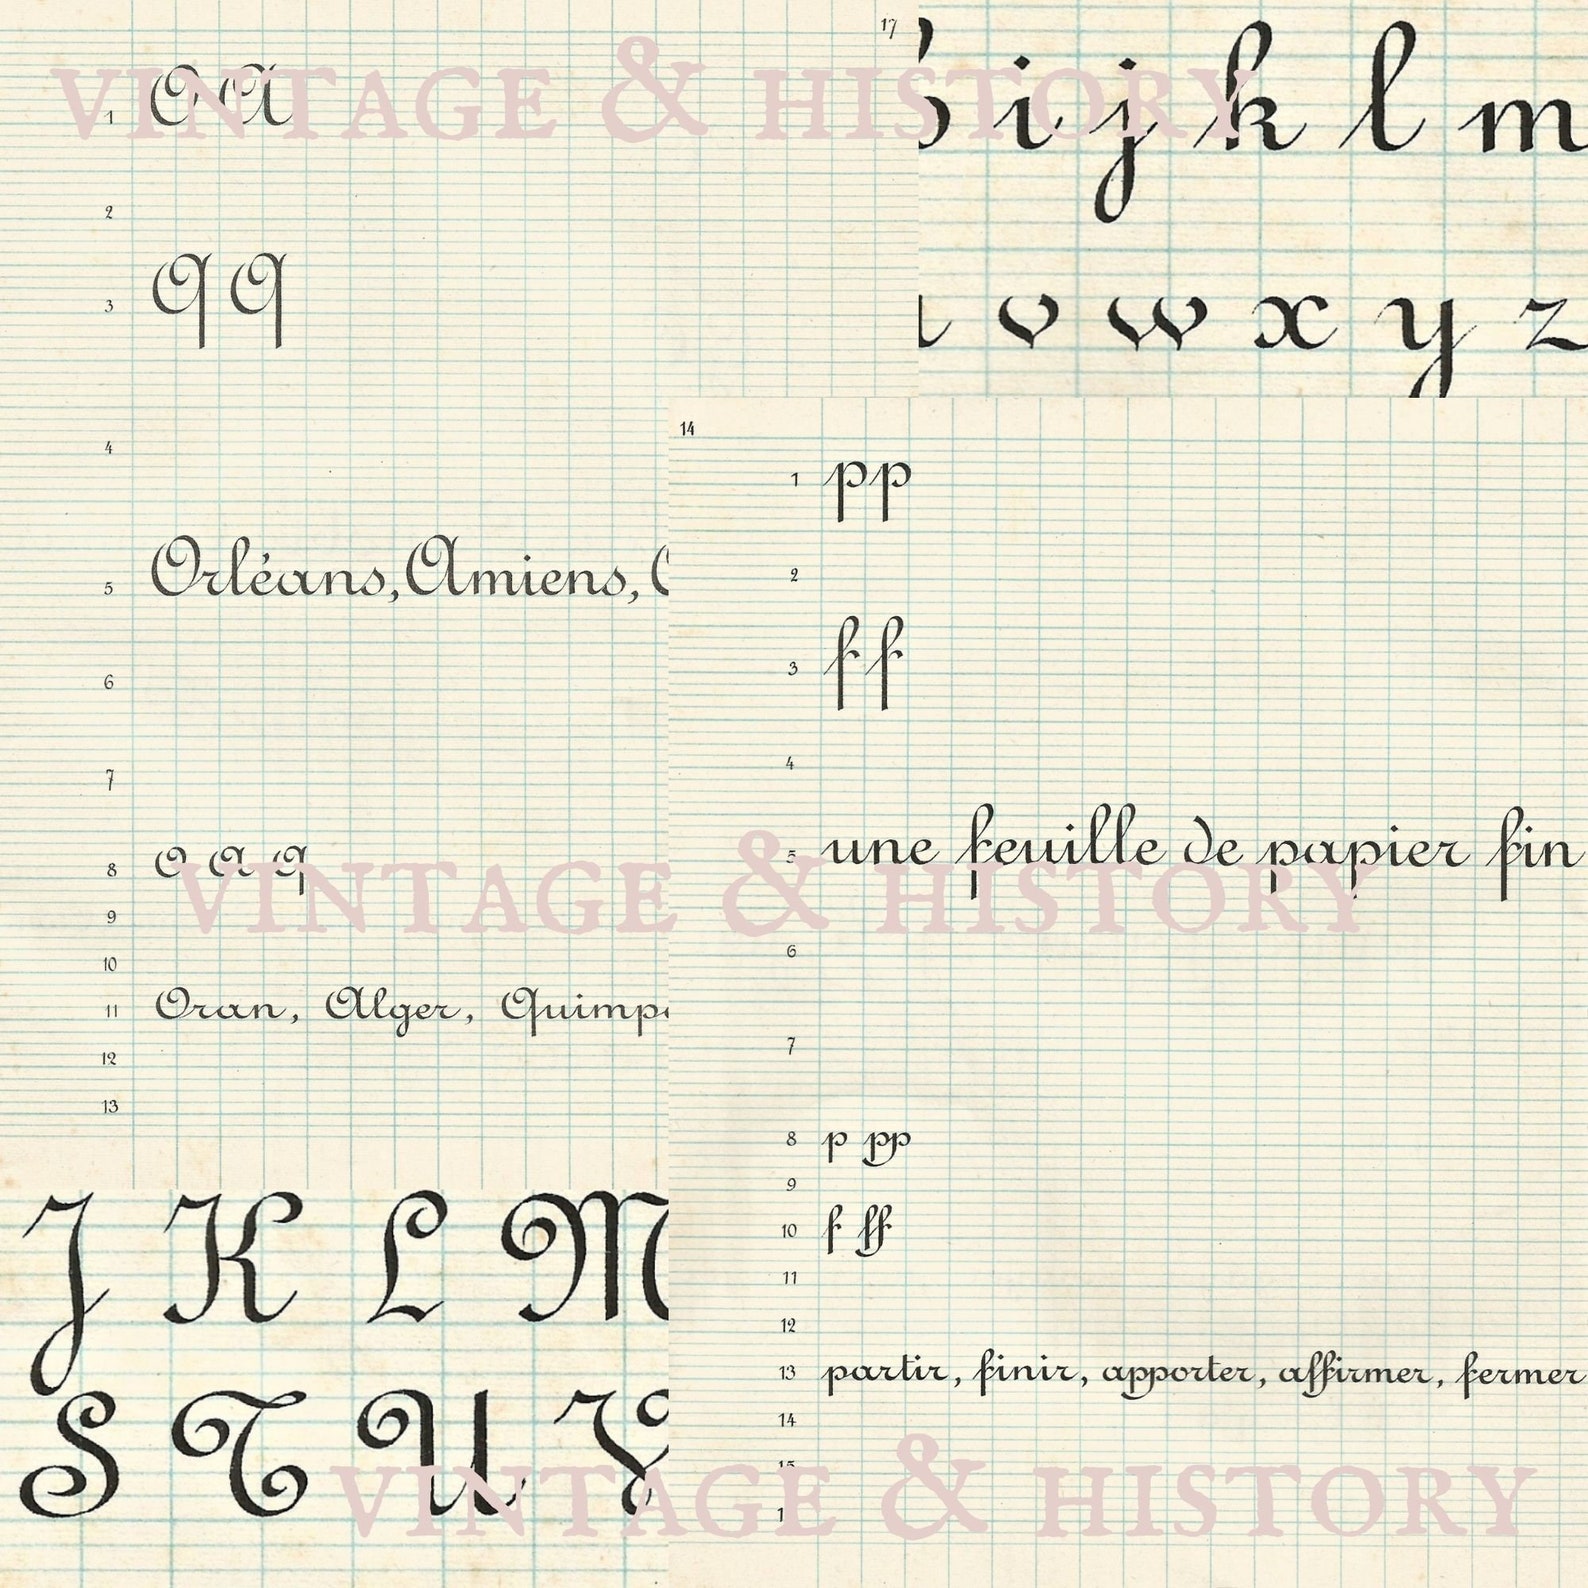 17
1 O A
2
3 Q Q
4
5 Orléans, Amiens,
6
7
8 O A Q
9
10
11 Oran, Alger,
12
13
i j k l m
v w x y z
14
1 p p
2
3 f f
4
5 une feuille de papier fin
6
7
8 p pp
9
10 f ff
11
12
13 partir, finir, apporter, affirmer, fermer
14
15
J K L M
S T U V
VINTAGE & HISTORY
VINTAGE & HISTORY
VINTAGE & HISTORY